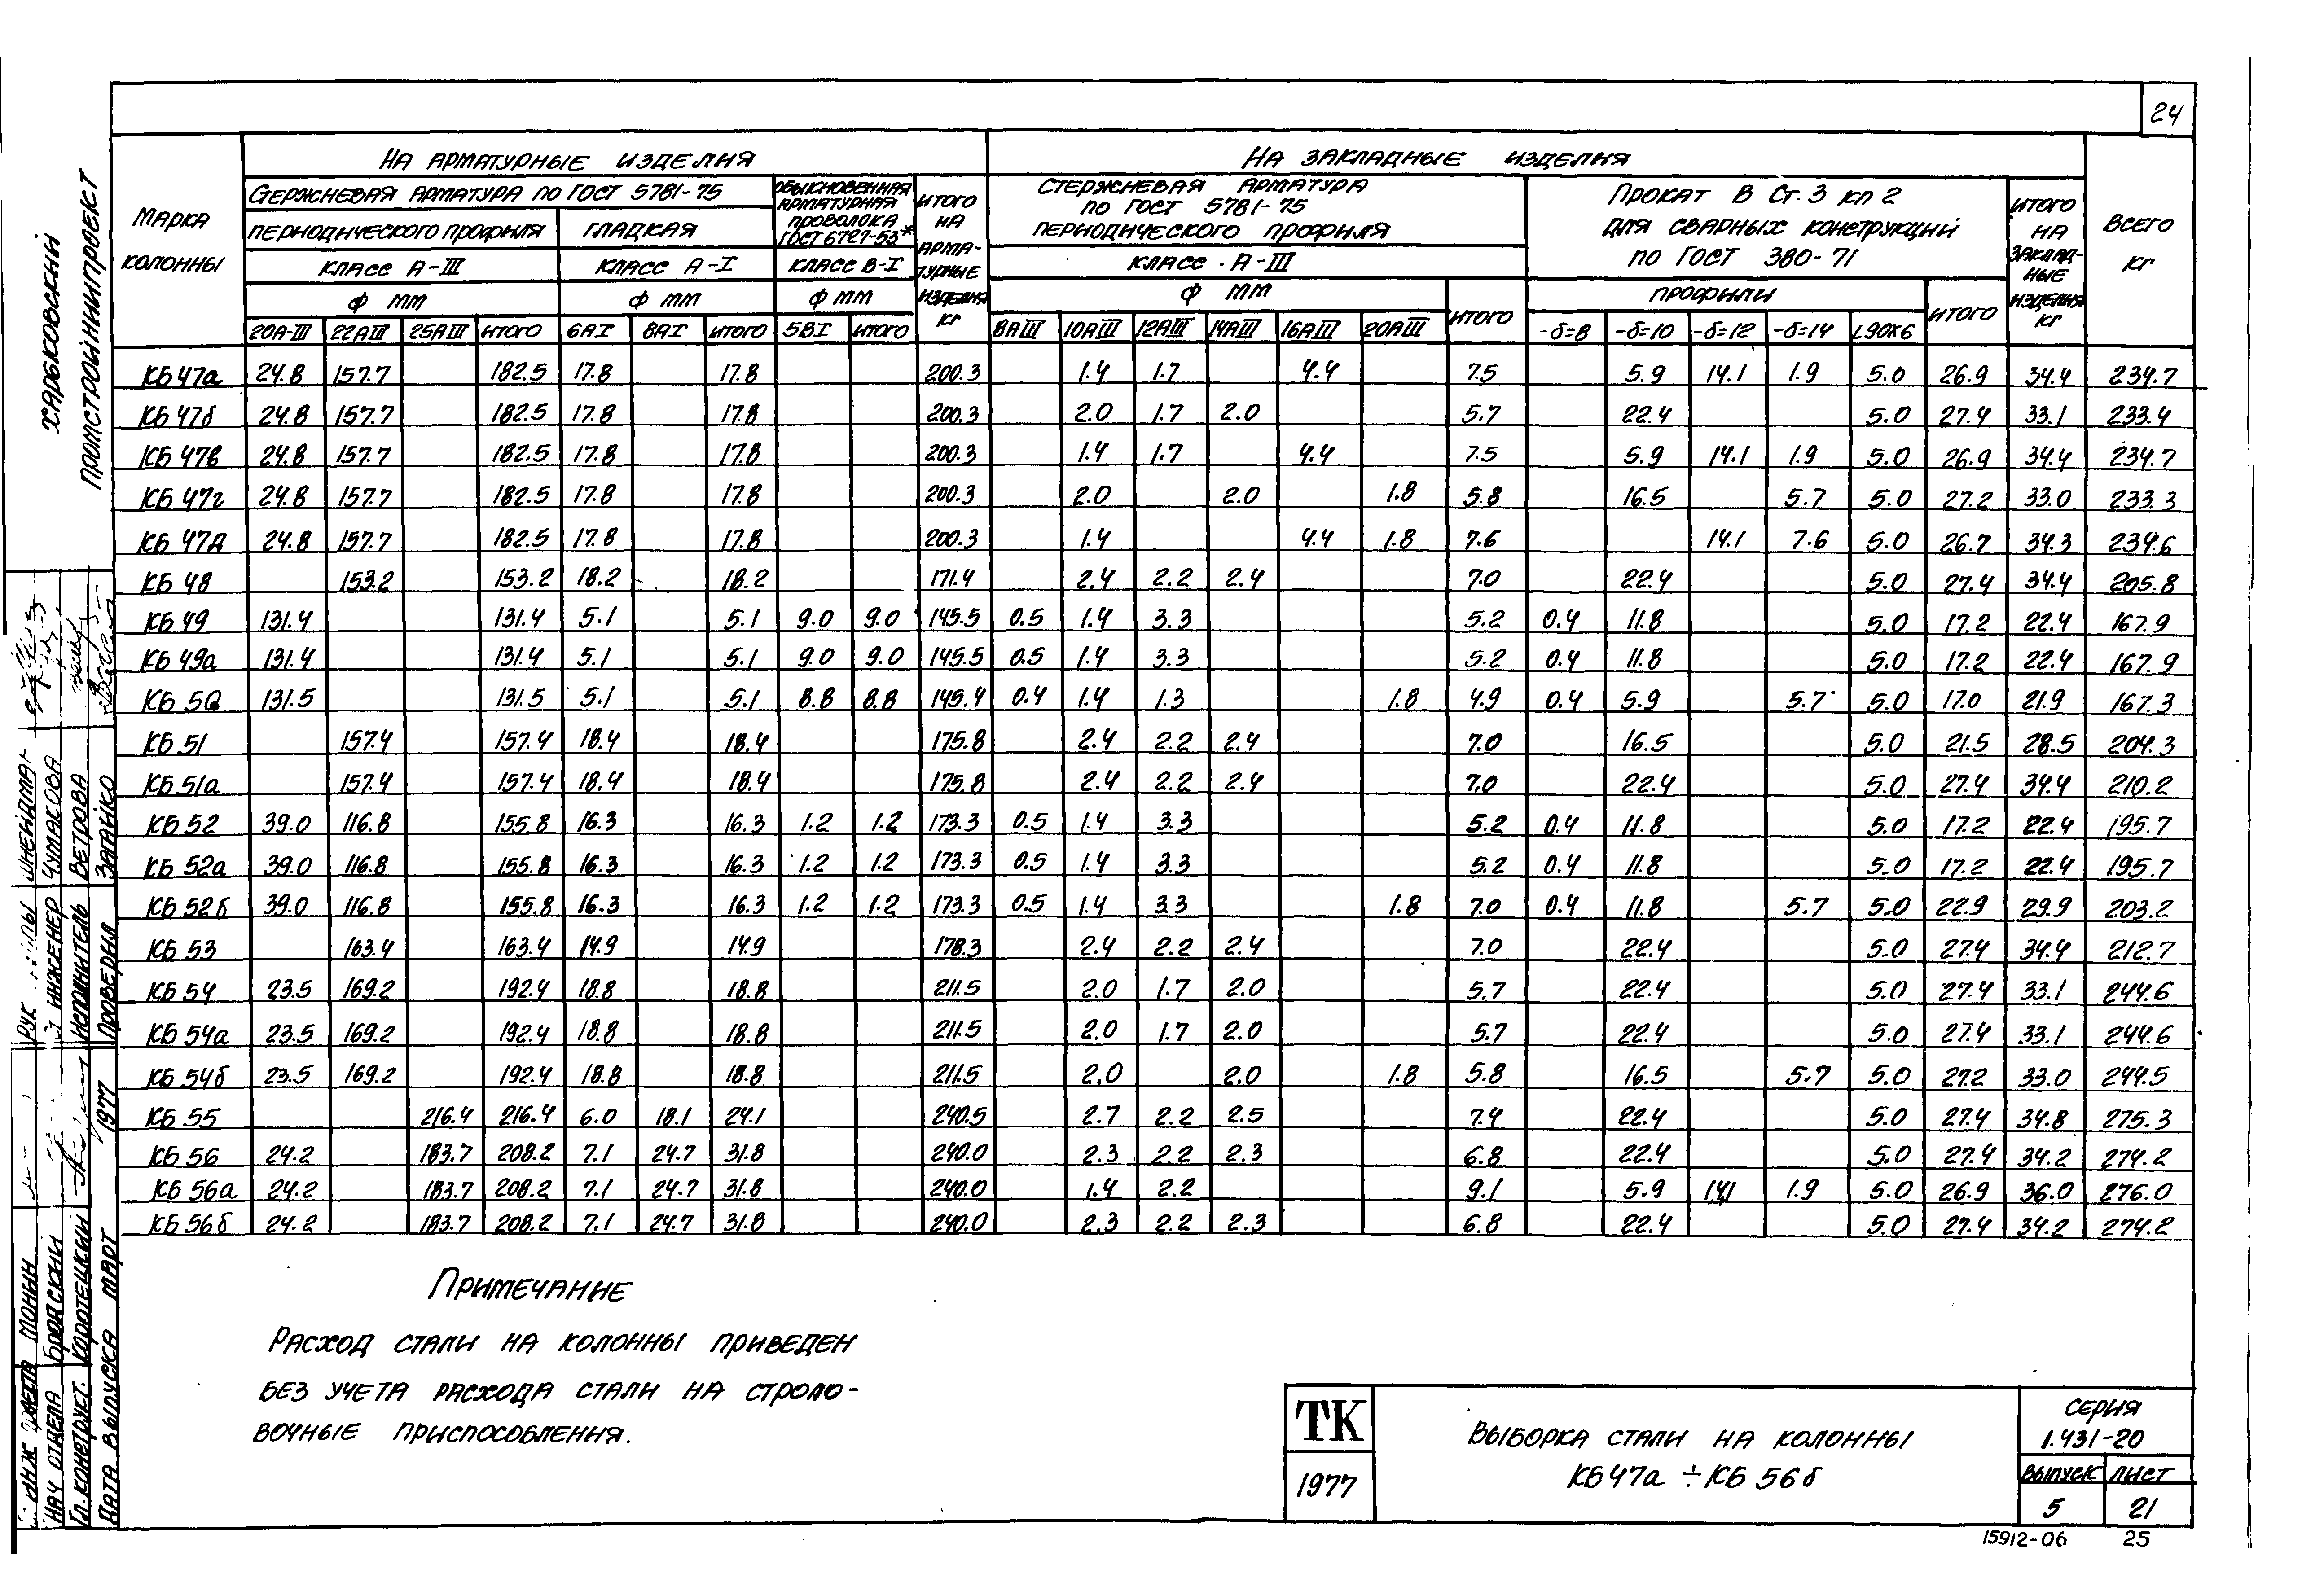 24
МАРКА КОЛОННЫ
НА АРМАТУРНЫЕ ИЗДЕЛИЯ
НА ЗАКЛАДНЫЕ ИЗДЕЛИЯ
СТЕРЖНЕВАЯ АРМАТУРА ПО ГОСТ 5781-75
ОБЫКНОВЕННАЯ АРМАТУРНАЯ ПРОВОЛОКА ГОСТ 6727-53*
ИТОГО НА АРМАТУРНЫЕ ИЗДЕЛИЯ КГ
СТЕРЖНЕВАЯ АРМАТУРА
ПО ГОСТ 5781-75
ПЕРИОДИЧЕСКОГО ПРОФИЛЯ
ПРОКАТ В СТ.3 КП 2
ДЛЯ СВАРНЫХ КОНСТРУКЦИЙ
ПО ГОСТ 380-71
ИТОГО НА ЗАКЛАД-НЫЕ ИЗДЕЛИЯ КГ
ВСЕГО КГ
ПЕРИОДИЧЕСКОГО ПРОФИЛЯ ГЛАДКАЯ
КЛАСС А-III КЛАСС А-I КЛАСС В-I КЛАСС А-III
Ф ММ Ф ММ Ф ММ Ф ММ ИТОГО ПРОФИЛИ ИТОГО
20А-III 22АIII 25АIII ИТОГО 6АI 8АI ИТОГО 5ВI ИТОГО 8АIII 10АIII 12АIII 14АIII 16АIII 20АIII -δ=8 -δ=10 -δ=12 -δ=14 L90х6
КБ 47а 24.8 157.7 182.5 17.8 17.8 200.3 1.4 1.7 4.4 7.5 5.9 14.1 1.9 5.0 26.9 34.4 234.7
КБ 47б 24.8 157.7 182.5 17.8 17.8 200.3 2.0 1.7 2.0 5.7 22.4 5.0 27.4 33.1 233.4
КБ 47в 24.8 157.7 182.5 17.8 17.8 200.3 1.4 1.7 4.4 7.5 5.9 14.1 1.9 5.0 26.9 34.4 234.7
КБ 47г 24.8 157.7 182.5 17.8 17.8 200.3 2.0 2.0 1.8 5.8 16.5 5.7 5.0 27.2 33.0 233.3
КБ 47д 24.8 157.7 182.5 17.8 17.8 200.3 1.4 4.4 1.8 7.6 14.1 7.6 5.0 26.7 34.3 234.6
КБ 48 153.2 153.2 18.2 18.2 171.4 2.4 2.2 2.4 7.0 22.4 5.0 27.4 34.4 205.8
КБ 49 131.4 131.4 5.1 5.1 9.0 9.0 145.5 0.5 1.4 3.3 5.2 0.4 11.8 5.0 17.2 22.4 167.9
КБ 49а 131.4 131.4 5.1 5.1 9.0 9.0 145.5 0.5 1.4 3.3 5.2 0.4 11.8 5.0 17.2 22.4 167.9
КБ 50 131.5 131.5 5.1 5.1 8.8 8.8 145.4 0.4 1.4 1.3 1.8 4.9 0.4 5.9 5.7 5.0 17.0 21.9 167.3
КБ 51 157.4 157.4 18.4 18.4 175.8 2.4 2.2 2.4 7.0 16.5 5.0 21.5 28.5 204.3
КБ 51а 157.4 157.4 18.4 18.4 175.8 2.4 2.2 2.4 7.0 22.4 5.0 27.4 34.4 210.2
КБ 52 39.0 116.8 155.8 16.3 16.3 1.2 1.2 173.3 0.5 1.4 3.3 5.2 0.4 11.8 5.0 17.2 22.4 195.7
КБ 52а 39.0 116.8 155.8 16.3 16.3 1.2 1.2 173.3 0.5 1.4 3.3 5.2 0.4 11.8 5.0 17.2 22.4 195.7
КБ 52б 39.0 116.8 155.8 16.3 16.3 1.2 1.2 173.3 0.5 1.4 3.3 1.8 7.0 0.4 11.8 5.7 5.0 22.9 29.9 203.2
КБ 53 163.4 163.4 14.9 14.9 178.3 2.4 2.2 2.4 7.0 22.4 5.0 27.4 34.4 212.7
КБ 54 23.5 169.2 192.4 18.8 18.8 211.5 2.0 1.7 2.0 5.7 22.4 5.0 27.4 33.1 244.6
КБ 54а 23.5 169.2 192.4 18.8 18.8 211.5 2.0 1.7 2.0 5.7 22.4 5.0 27.4 33.1 244.6
КБ 54б 23.5 169.2 192.4 18.8 18.8 211.5 2.0 2.0 1.8 5.8 16.5 5.7 5.0 27.2 33.0 244.5
КБ 55 216.4 216.4 6.0 18.1 24.1 240.5 2.7 2.2 2.5 7.4 22.4 5.0 27.4 34.8 275.3
КБ 56 24.2 183.7 208.2 7.1 24.7 31.8 240.0 2.3 2.2 2.3 6.8 22.4 5.0 27.4 34.2 274.2
КБ 56а 24.2 183.7 208.2 7.1 24.7 31.8 240.0 1.4 2.2 9.1 5.9 14.1 1.9 5.0 26.9 36.0 276.0
КБ 56б 24.2 183.7 208.2 7.1 24.7 31.8 240.0 2.3 2.2 2.3 6.8 22.4 5.0 27.4 34.2 274.2
ПРИМЕЧАНИЕ
РАСХОД СТАЛИ НА КОЛОННЫ ПРИВЕДЕН
БЕЗ УЧЕТА РАСХОДА СТАЛИ НА СТРОПО-
ВОЧНЫЕ ПРИСПОСОБЛЕНИЯ.
ТК
1977
ВЫБОРКА СТАЛИ НА КОЛОННЫ
КБ 47а ÷ КБ 56б
СЕРИЯ
1.431-20
ВЫПУСК ЛИСТ
5 21
15912-06 25
ХАРЬКОВСКИЙ
ПРОМСТРОЙНИИПРОЕКТ
РУК ШНЕЙДМАН
ИНЖЕНЕР ЧУМАКОВА
ИСПОЛНИТЕЛЬ ВЕТРОВА
ПРОВЕРИЛ ЗАПАЙКО
ИНЖ МОНИН
НАЧ ОТДЕЛА БРОДСКИЙ
ГЛ. КОНСТРУКТ. КОРОТЕЦКИЙ
ДАТА ВЫПУСКА МАРТ 1977